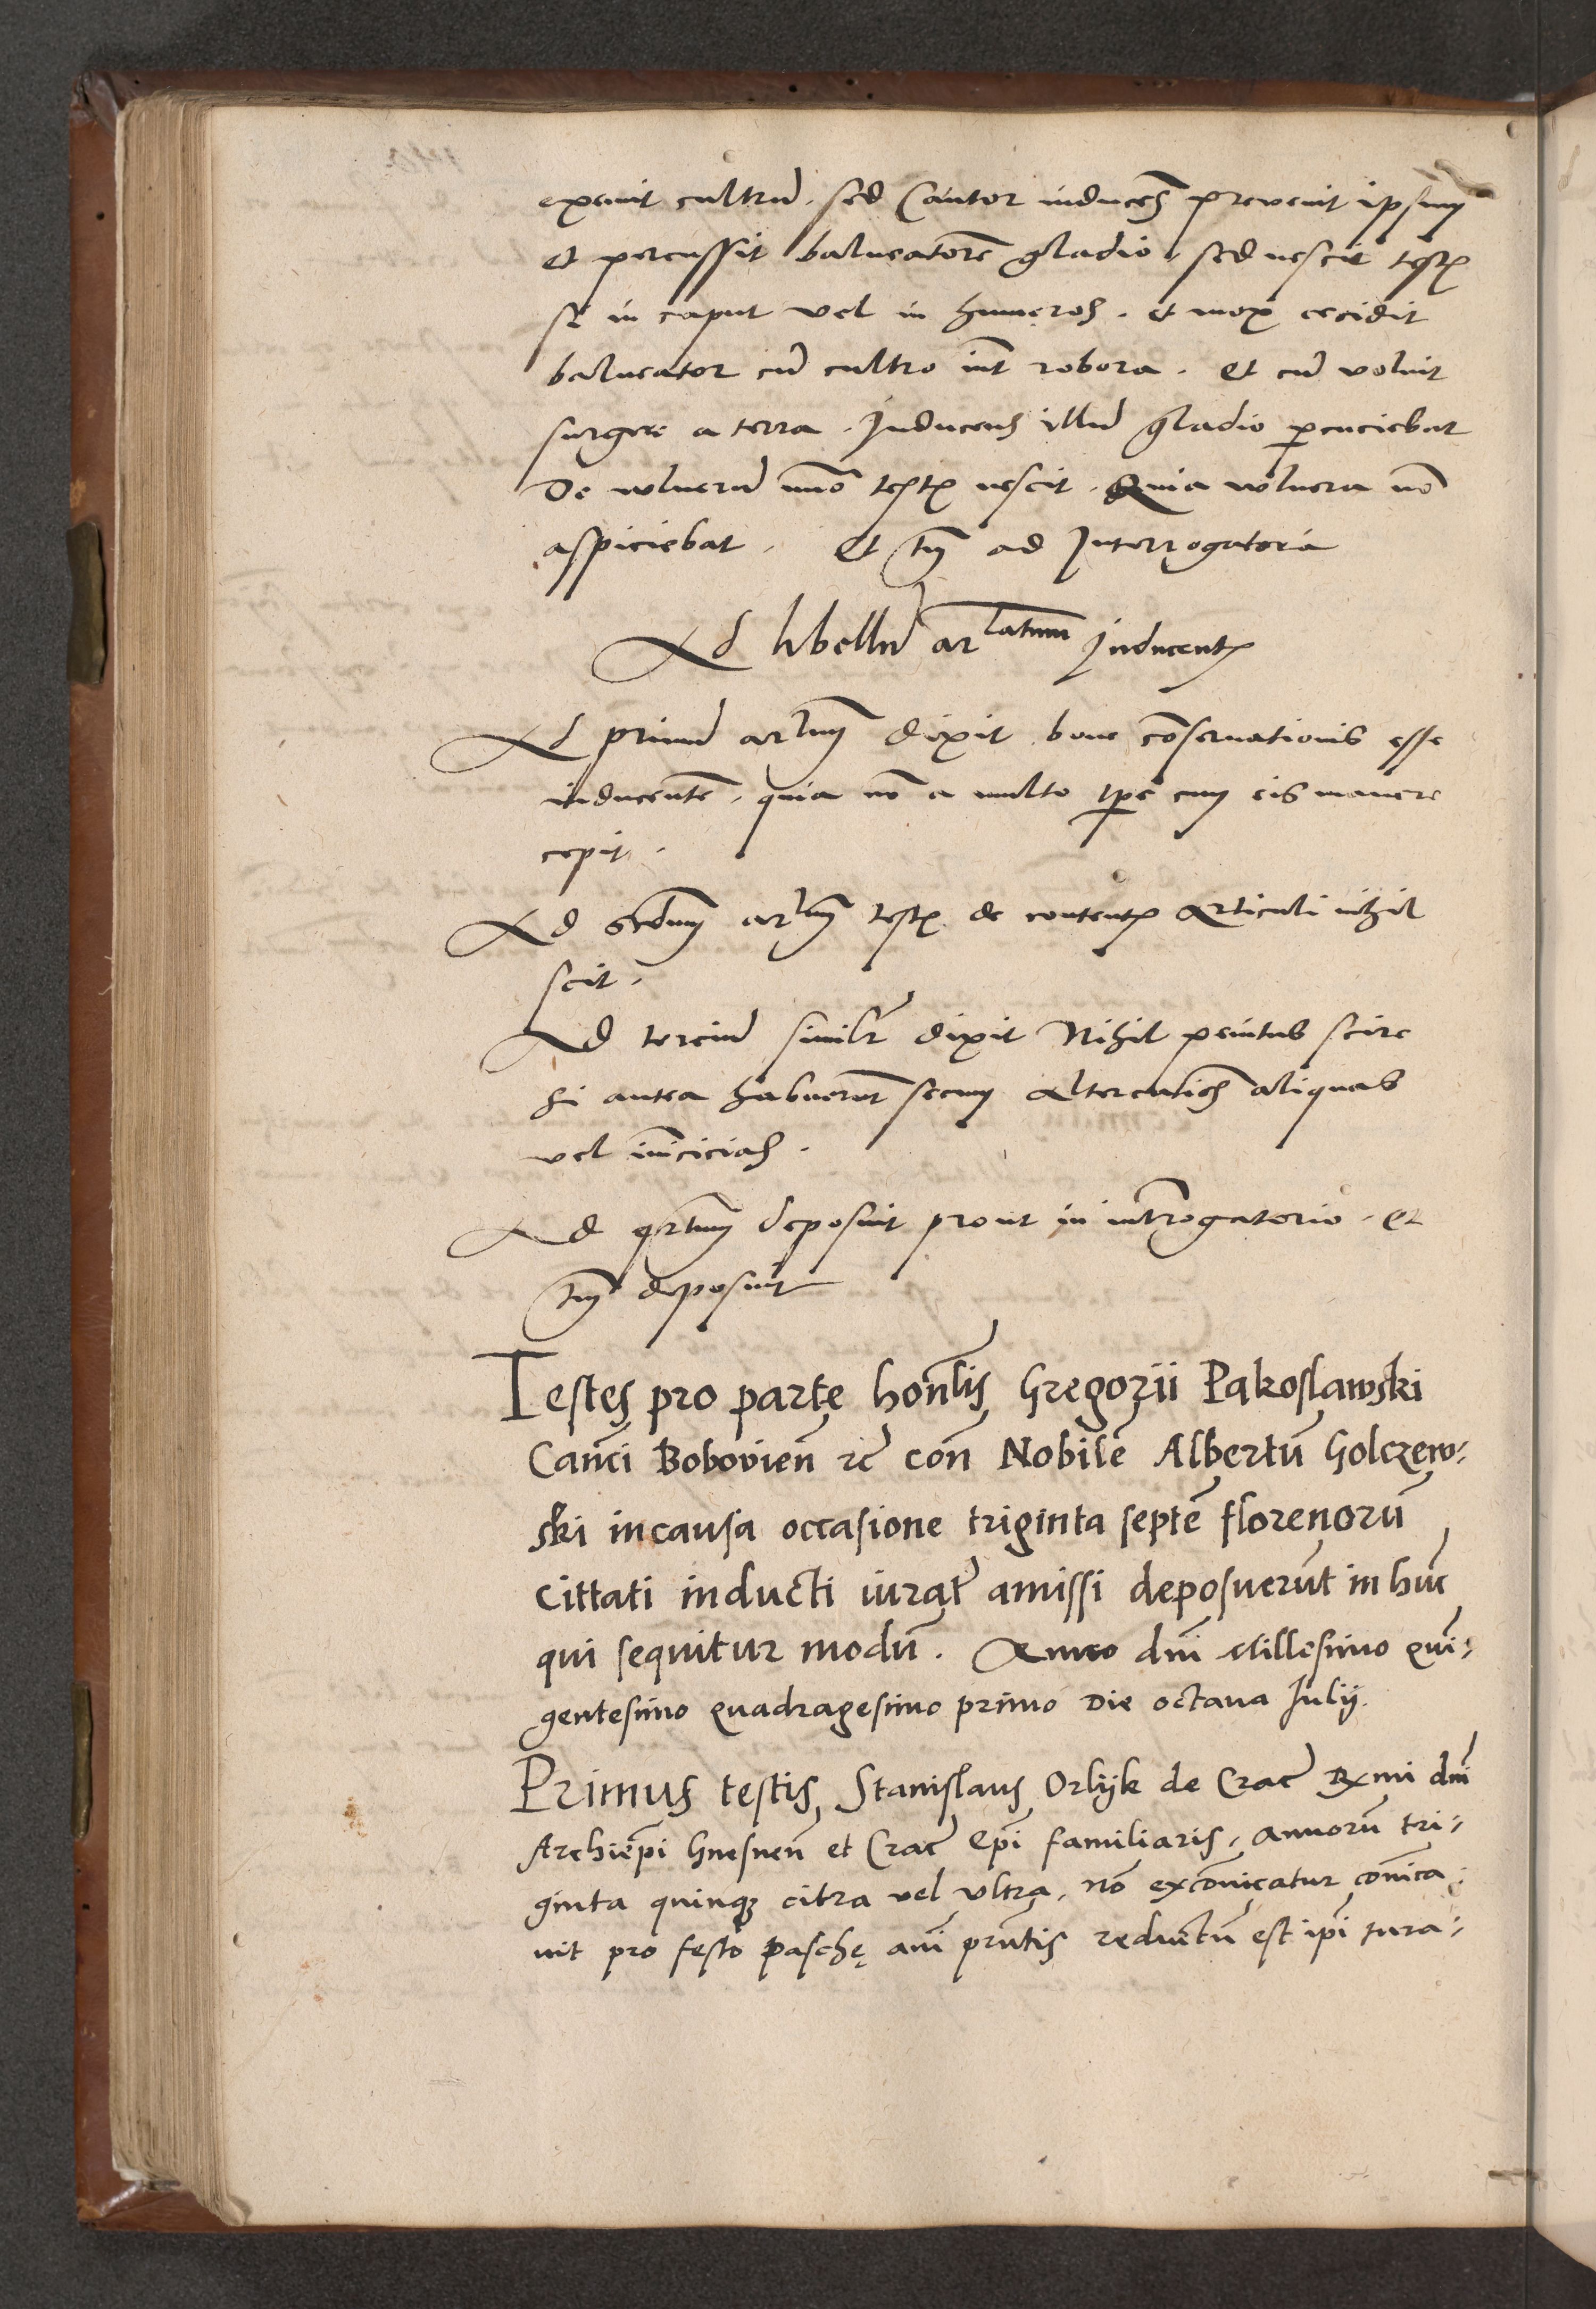 exemit cultrū. sed Cantor inducēs prevenit ipsum
et percussit balneatorē gladio, sed nescit testis
si in caput vel in humeros. et mox cecidit
balneator cū cultro int̄ robora. et cū voluit
surgere a terra. Inducens illū gladio percuciebat
De vulnerū nūo testis nescit. Quia vulnera nō
aspiciebat. et tm̄ ad Interrogatoria
Ad libellū ar latum Inducentis
Ad primū arlum̄ dixit bone cōseruationis esse
inducentē. quia nō a multo tpe cum eis manere
cepit.
Ad scdum arlm̄ testis de contentis Articuli nihil
scit.
Ad terciū similr̄ dixit Nihil penitus scire
si antea habuerūt secum altercatiōes aliquas
vel inīicicias.
Ad qrtum deposuit prout in int̄rogatorio. et
tm̄ deposuit
Testes pro parte honl̄is Gregorii Pakoslawski
Canc̄i Boboviēn zc̄ con̄ Nobilē Albertū Golczew⸗
ski incausa occasione triginta septē florenorū
cittati inducti iurat̄ amissi deposuerūt in hūc
qui sequitur modū. Anno dn̄i Millesimo qui⸗
gentesimo quadragesimo primo Die octava Julij.
Primus testis Stanislaus Orlijk de Crac̄ Rx̄mi dn̄i
Archiēpi Gnesnēn et Crac̄ Ep̄i familiaris, annorū tri⸗
ginta quinqȝ citra vel vltra, nō excōnicatur cōnica⸗
uit pro festo Paschę an̄i prn̄tis reductū est ip̄i iura⸗